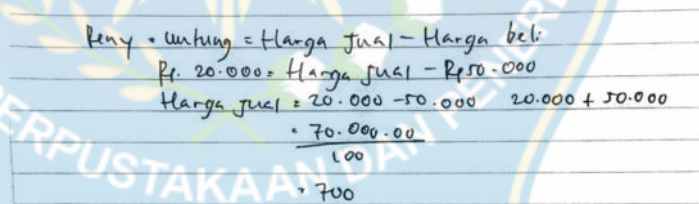 Reny = untung = Harga Jual - Harga beli
Rp. 20.000 = Harga Jual - Rp 50.000
Harga jual = 20.000 - 50.000 20.000 + 50.000
= 70.000.00
100
= 700
ERPUSTAKAAN DAN PENERB